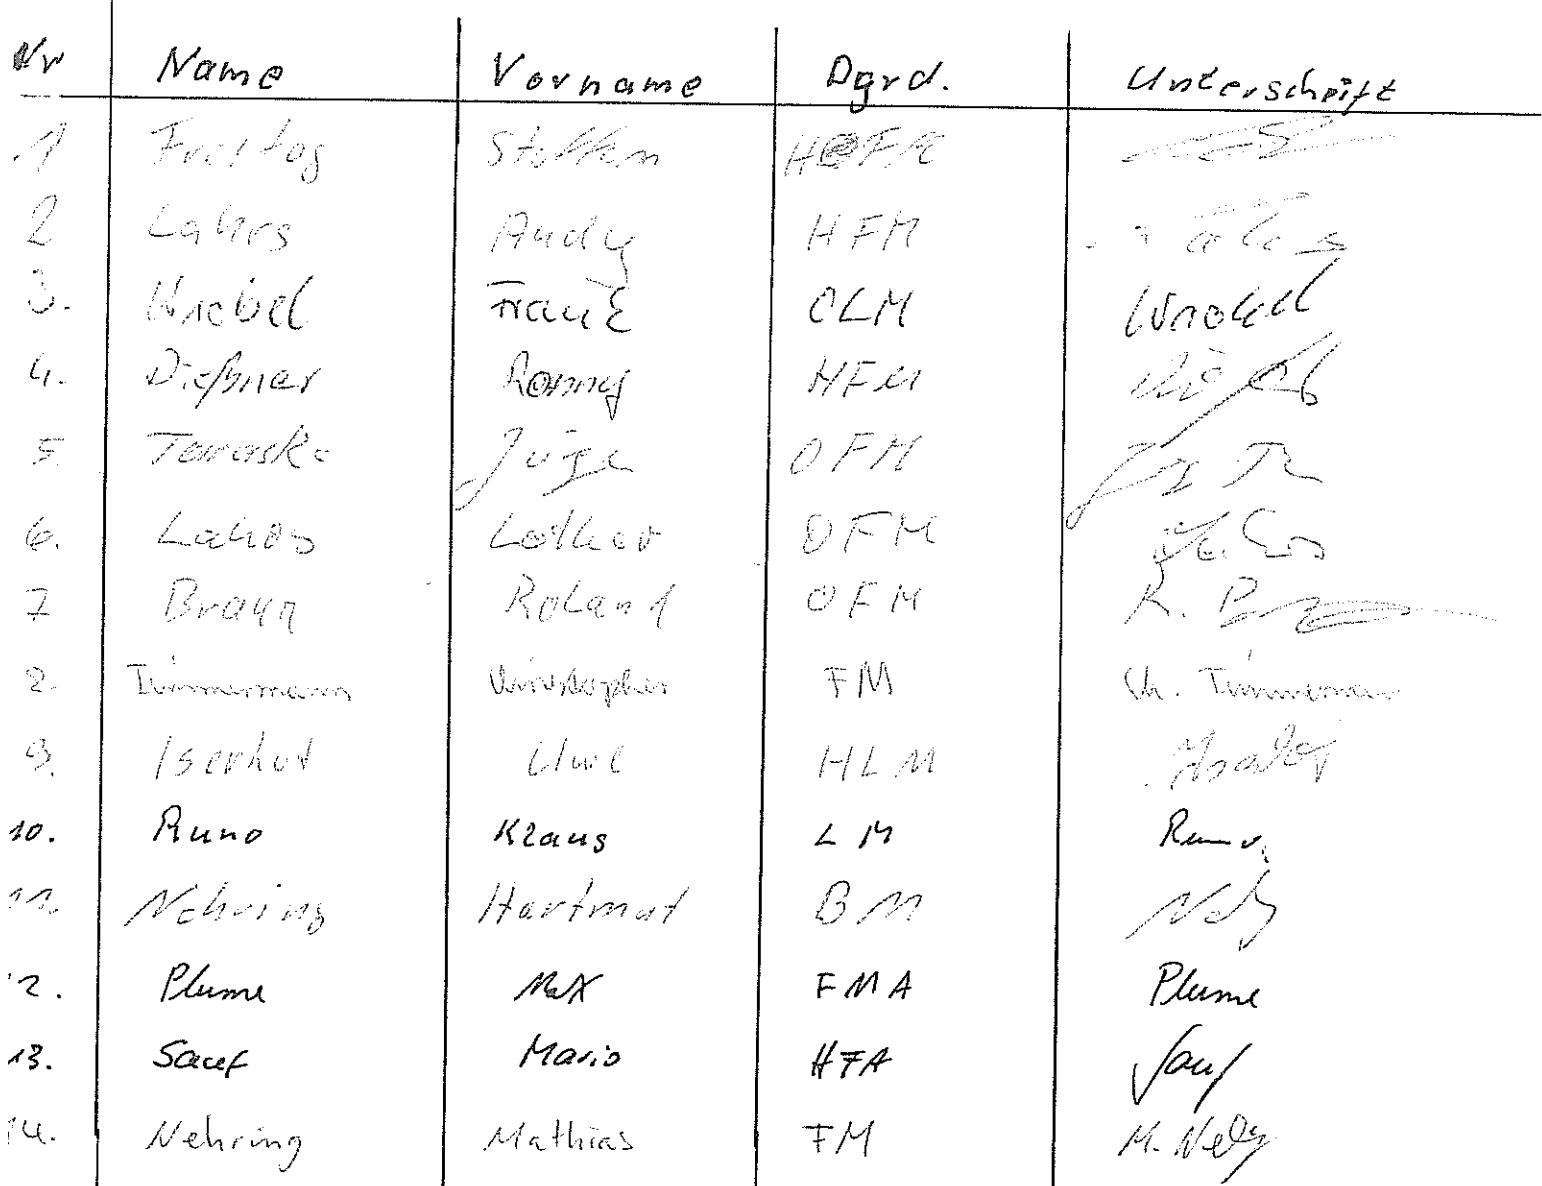 Nr Name Vorname Dgrd. Unterschrift
1 Freitag Steffen
2 Lahrs Andy HFM
3. Knebel Frank OLM
4. Dießner Ronny HFM
5. OFM
6. Lahrs Lothar OFM
7 Braun Roland OFM R. B
8. Timmermann Christopher FM Ch. Timmermann
9. Iserhot Uwe HLM
10. Runo Klaus LM Runo
11. Nehring Hartmut BM
12. Plume Max FMA Plume
13. Sauf Mario HFA Sauf
14. Nehring Mathias FM M.